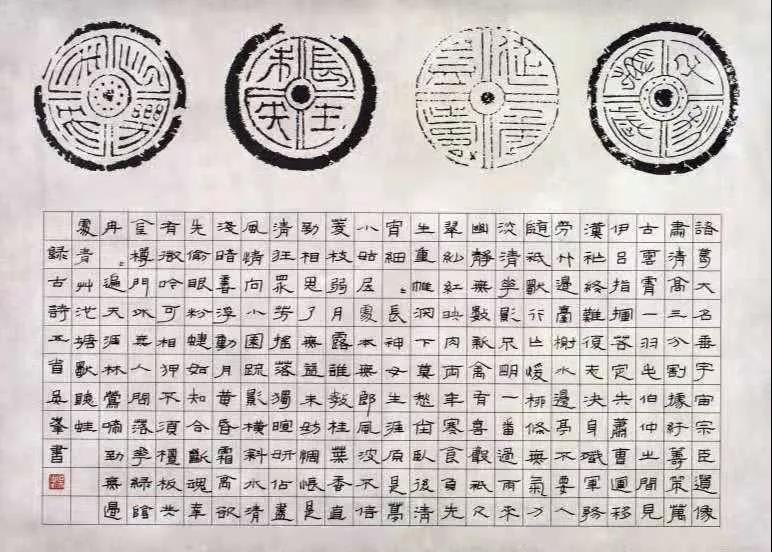 長生未央
諸葛大名垂宇宙宗臣遺像
肅清高三分割據紆籌策萬
古雲霄一羽毛伯仲之間見
伊呂指揮若定失蕭曹運移
漢祚終難復志決身殲軍務
勞竹邊臺榭水邊亭不要人
隨祇獨行乍暖柳條無氣力
淡清華影不明一番過雨來
幽靜無數新禽有喜聲祇又
翠紗紅映肉兩年寒食負先
生重帷深下莫愁堂臥後清
宵細〻長神女生涯原是夢
小姑居處本無郎風波不信
菱枝弱月露誰教桂葉香直
勁相思了無益未妨惆悵是
清狂眾芳搖落獨暄妍佔盡
風情向小園疏影橫斜水清
淺暗香浮動月黃昏霜禽欲
先偷眼粉蝶如知合斷魂幸
有微吟可相狎不須檀板共
金樽門外無人問落華綠陰
冉〻遍天涯林鶯啼到無邊
處青艸池塘獨聽蛙
錄古詩五首吳峯書